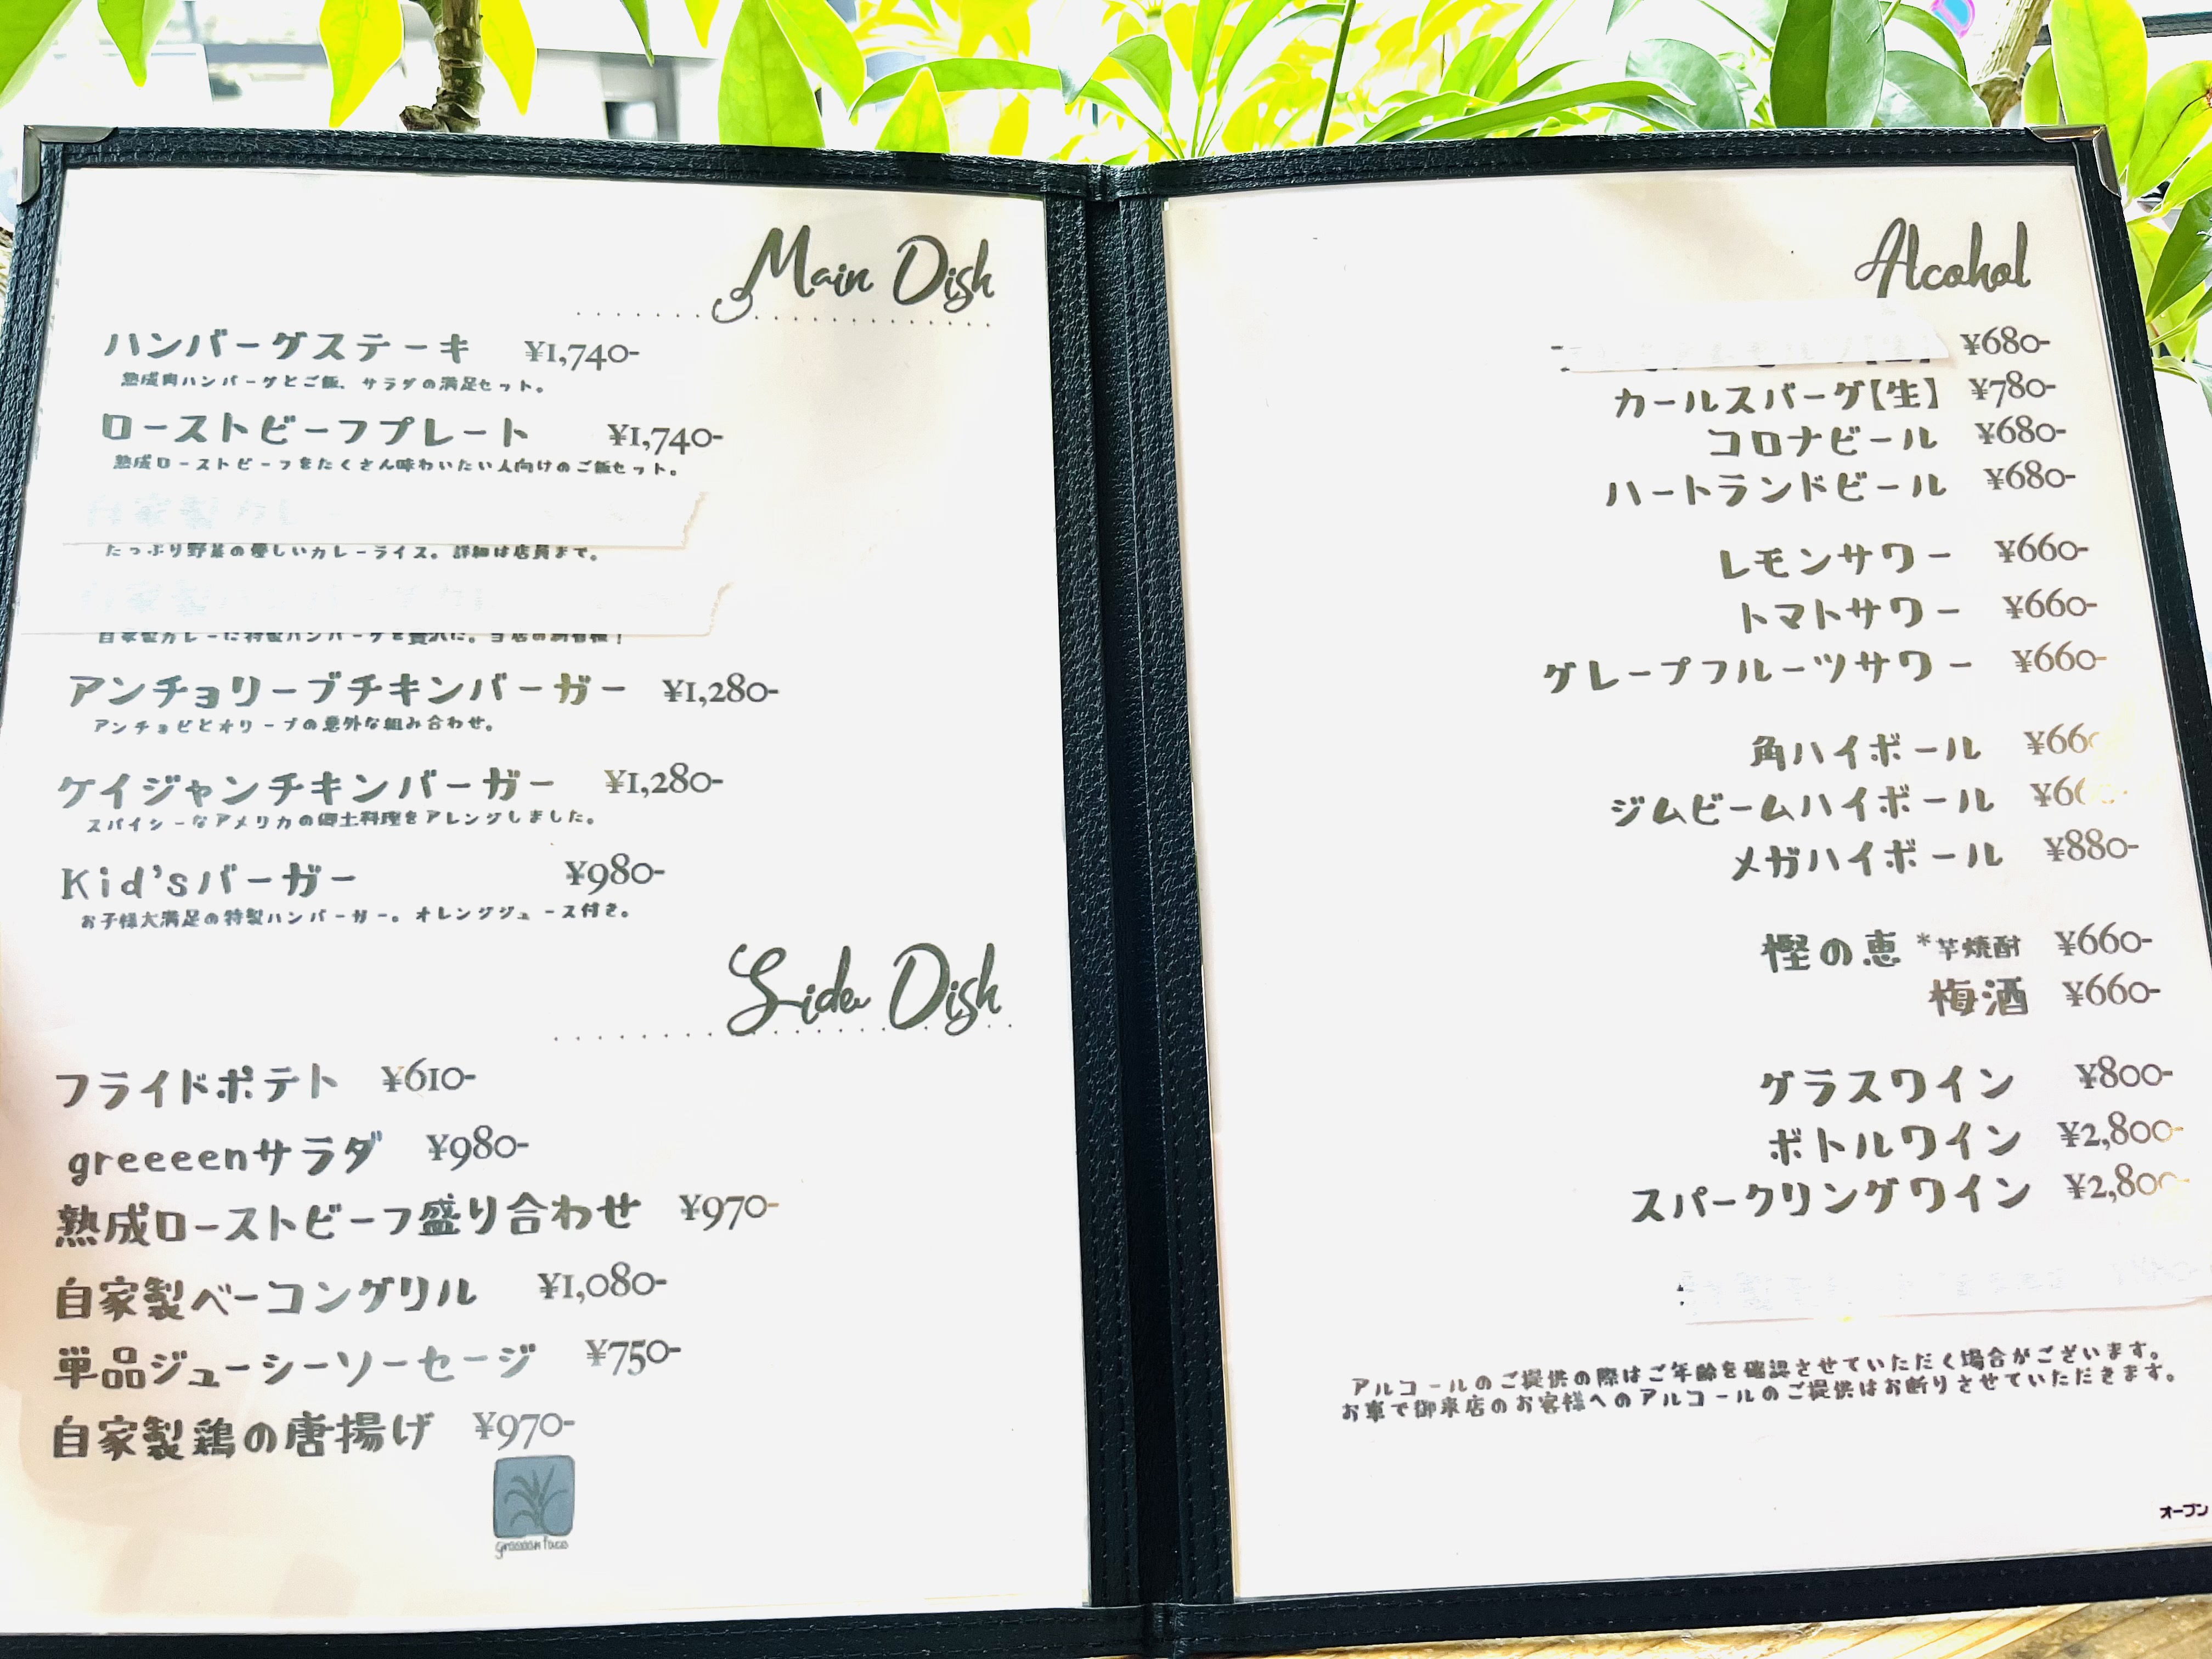 Main Dish
ハンバーグステーキ ¥1,740-
熟成肉ハンバーグとご飯、サラダの満足セット。
ローストビーフプレート ¥1,740-
熟成ローストビーフをたくさん味わいたい人向けのご飯セット。
自家製カレー
たっぷり野菜の優しいカレーライス。詳細は店員まで。
自家製
自家製カレーに特製ハンバーグを贅沢に。当店の
アンチョリーブチキンバーガー ¥1,280-
アンチョビとオリーブの意外な組み合わせ。
ケイジャンチキンバーガー ¥1,280-
スパイシーなアメリカの郷土料理をアレンジしました。
Kid'sバーガー ¥980-
お子様大満足の特製ハンバーガー。オレンジジュース付き。
Side Dish
フライドポテト ¥610-
greeeenサラダ ¥980-
熟成ローストビーフ盛り合わせ ¥970-
自家製ベーコングリル ¥1,080-
単品ジューシーソーセージ ¥750-
自家製鶏の唐揚げ ¥970-
Alcohol
¥680-
カールスバーグ【生】 ¥780-
コロナビール ¥680-
ハートランドビール ¥680-
レモンサワー ¥660-
トマトサワー ¥660-
グレープフルーツサワー ¥660-
角ハイボール ¥660
ジムビームハイボール ¥660-
メガハイボール ¥880-
樫の恵 *芋焼酎 ¥660-
梅酒 ¥660-
グラスワイン ¥800-
ボトルワイン ¥2,800-
スパークリングワイン ¥2,800-
アルコールのご提供の際はご年齢を確認させていただく場合がございます。
お車で御来店のお客様へのアルコールのご提供はお断りさせていただきます。
オープン